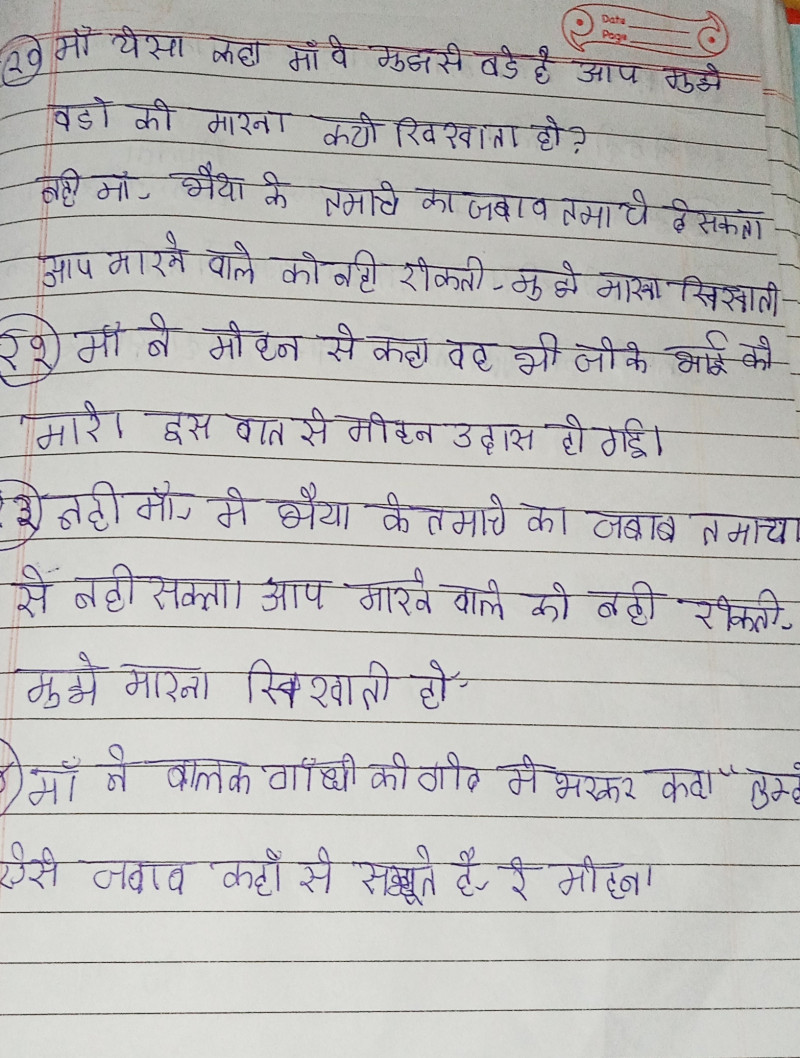 Date
Page
२१ माँ येसा कहा माँ वे मुझसे बडे है आप मुझे
बडो की मारना कयो सिखाता हो?
नही माँ, भैया के तमाचे का जबाव तमाचे दे सकता
आप मारने वाले को नही रोकती, मुझे मारना सिखाती
२२ माँ ने मोहन से कहा वह भी जो के भाई को
मारे। इस बात से मोहन उदास हो गई।
नही माँ, मे भैया के तमाचे का जबाब तमाचा
से नही सकता। आप मारने वाले को नही रोकती,
मुझे मारना सिखाती हो,
माँ ने बालक गाँधी को गोद मे भरकर कहा" तुम्हे
ऐसे जबाब कहाँ से सझूते है, रे मोहन।